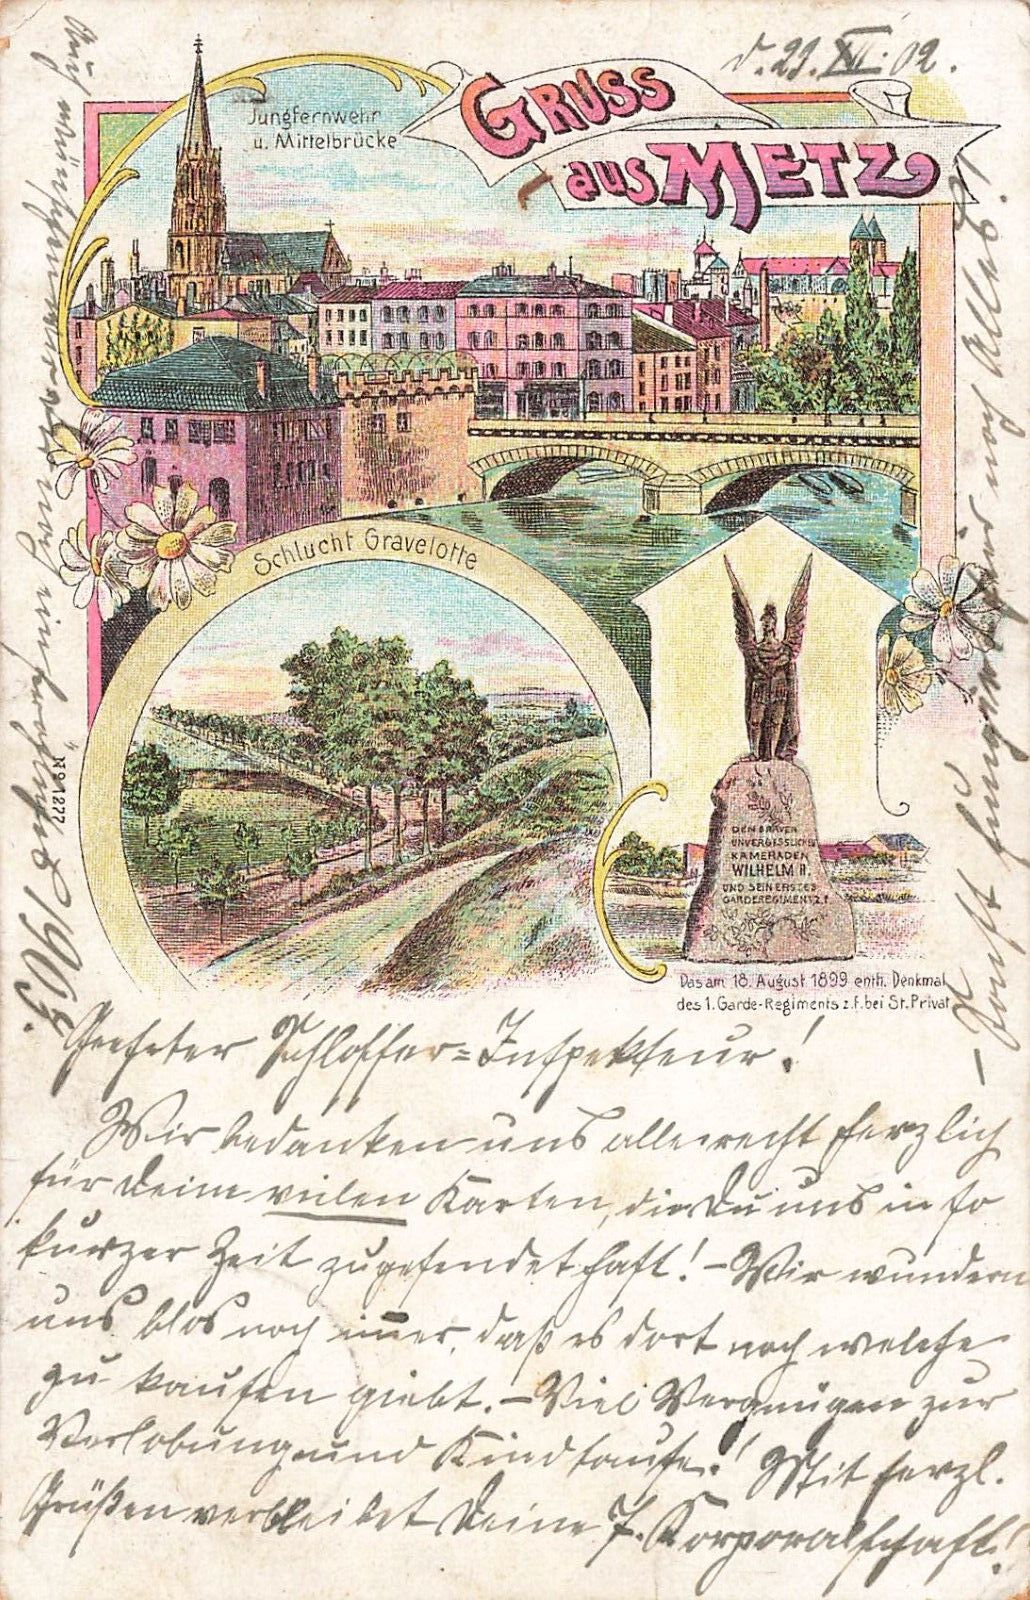 d. 29. XII. 02.
GRUSS
aus METZ
Jungfernwehr
u. Mittelbrücke
Schlucht Gravelotte
No 1277
DEN BRAVEN
UNVERGESSLICHEN
KAMERADEN
WILHELM II.
UND SEIN ERSTES
GARDEREGIMENT Z. F.
Das am 18. August 1899 enth. Denkmal
des 1. Garde-Regiments z. F. bei St. Privat
Geehrter Schlosser-Inspekteur!
Wir bedanken uns alle recht herzlich
für Deine vielen Karten, die Du uns in so
kurzer Zeit zugesendet hast! – Wir wundern
uns blos noch immer, daß es dort noch welche
zu kaufen giebt. – Viel Vergnügen zur
Verlobung und Kindtaufe! Mit herzl.
Grüßen verbleibet Deine 7. Korporalschaft!
Auch wünschen wir Dir noch ein 1903.
– Sonst noch Alles!